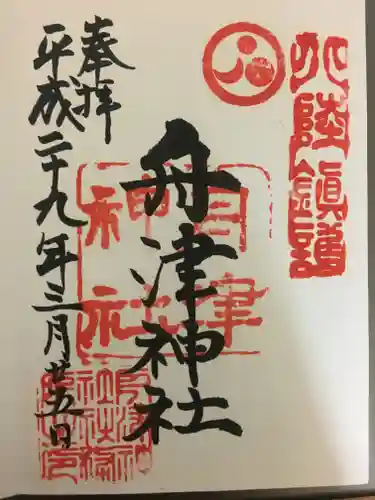 北陸鎮護
舟津神社
舟津神社
奉拝
平成二十九年三月廿五日